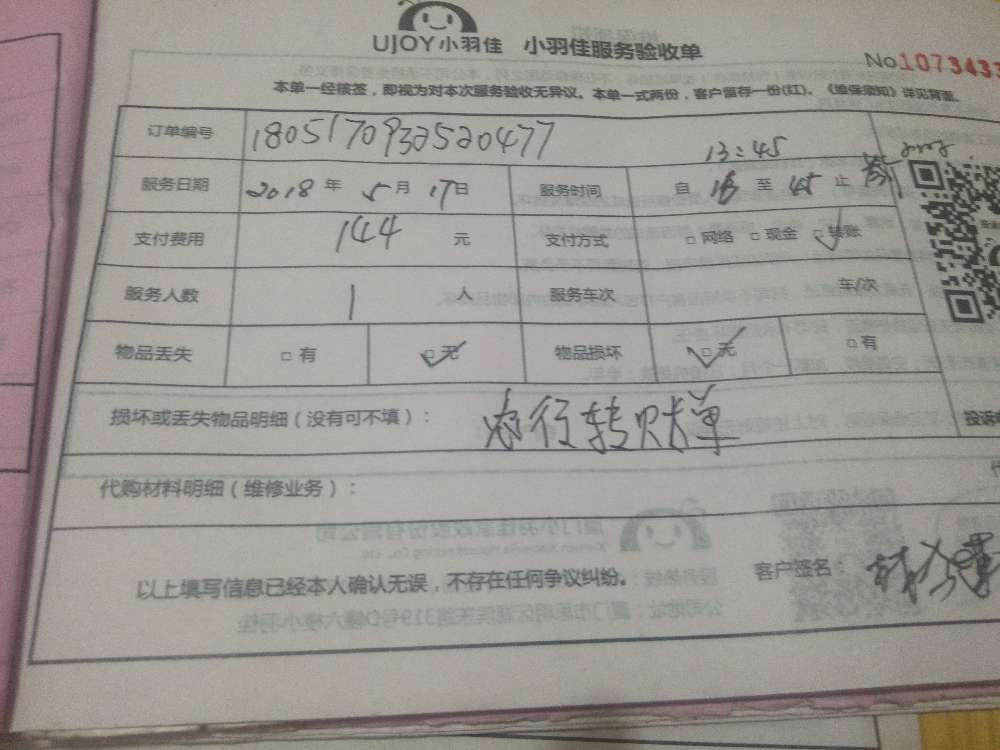 UJOY小羽佳 小羽佳服务验收单
No1073433
本单一经核签，即视为对本次服务验收无异议。本单一式两份，客户留存一份(红)。《维保须知》详见背面。
订单编号 1805170932520477
13:45
服务日期 2018 年 5 月 17 日 服务时间 自 至 45 止
支付费用 144 元 支付方式 □ 网络 □ 现金 □ 转账
服务人数 1 人 服务车次 车/次
物品丢失 □ 有 □ 无 物品损坏 □ 无 □ 有
损坏或丢失物品明细（没有可不填）： 农行转账单
投诉
代购材料明细（维修业务）：
以上填写信息已经本人确认无误，不存在任何争议纠纷。 客户签名：